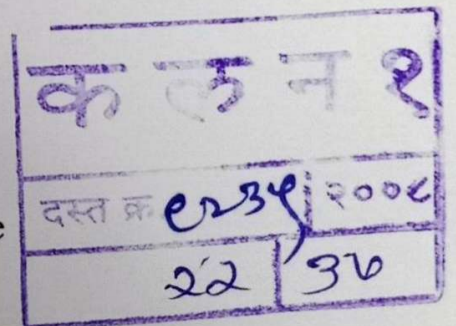 क ल न १
दस्त क्र ९२३५/ २००८
२२ ३७